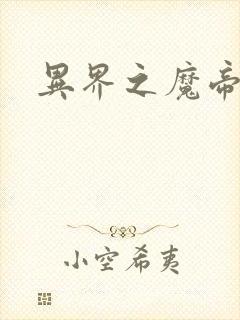 異界之魔帝
小空希夷